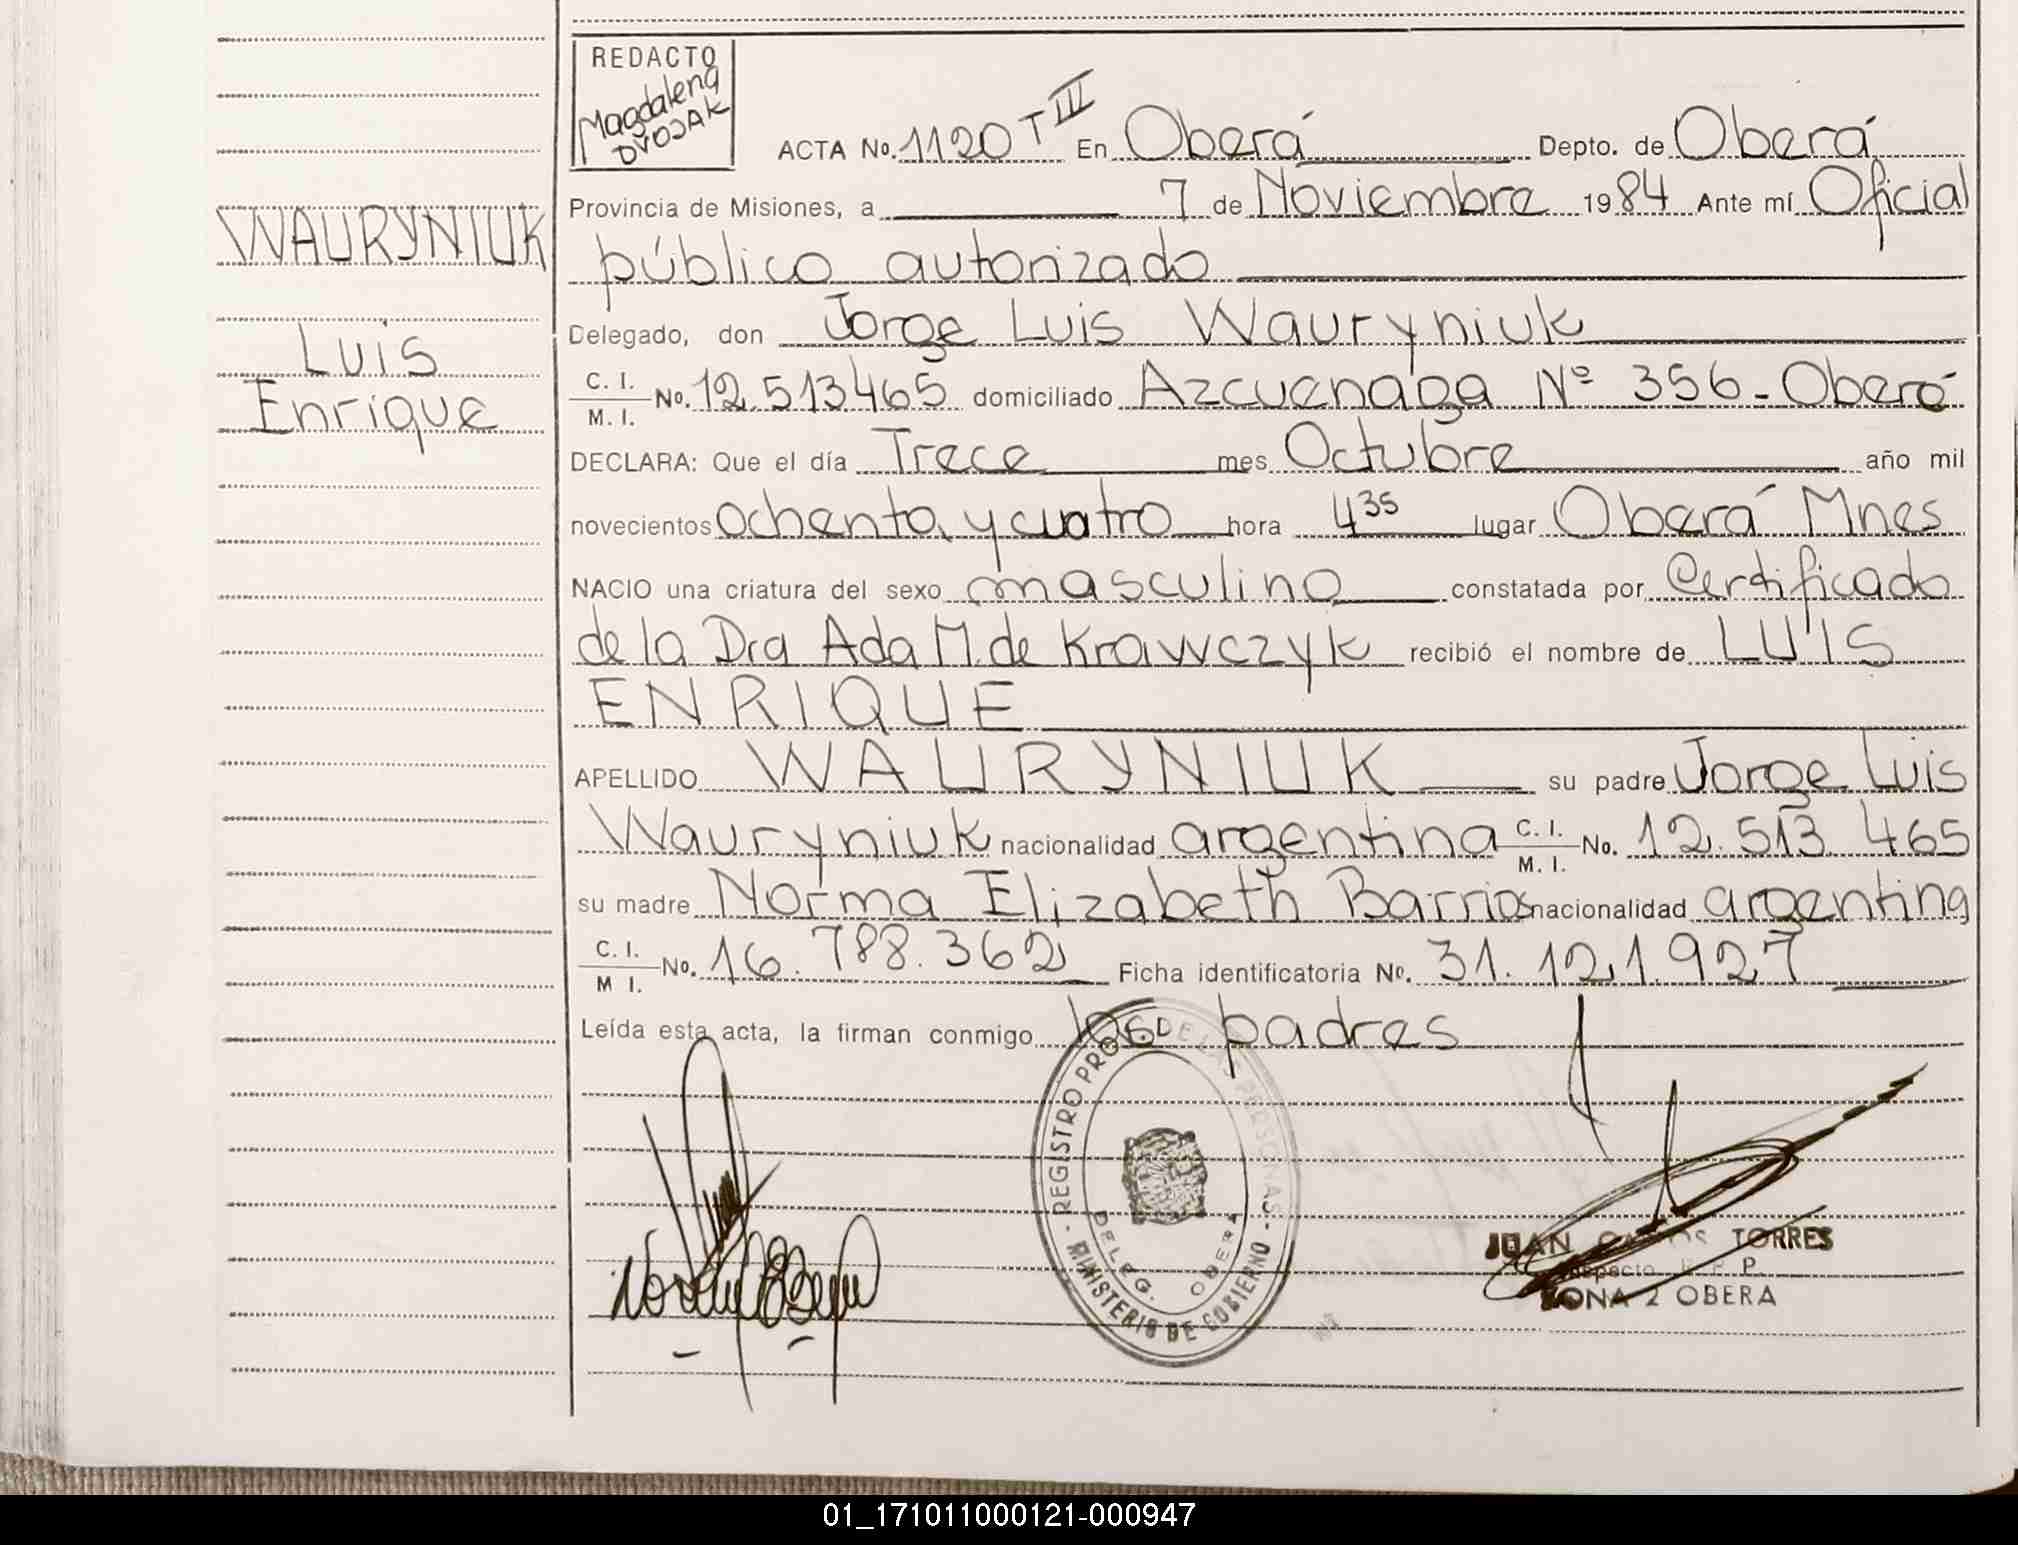 REDACTO
Magdalena
DVOJAK
ACTA No. 1120 T III En Oberá Depto. de Oberá
Provincia de Misiones, a 7 de Noviembre 1984 Ante mí Oficial
público autorizado
Delegado, don Jorge Luis Wauryniuk
C. I.
M. I.
No. 12.513.465 domiciliado Azcuenaga Nº 356 - Oberá
DECLARA: Que el día Trece mes Octubre año mil
novecientos ochenta y cuatro hora 4 35 lugar Oberá Mnes
NACIO una criatura del sexo masculino constatada por Certificado
de la Dra Ada M. de Krawczyk recibió el nombre de LUIS
ENRIQUE
APELLIDO WAURYNIUK su padre Jorge Luis
Wauryniuk nacionalidad argentina C. I. M. I. No. 12.513.465
su madre Norma Elizabeth Barrios nacionalidad argentina
C. I.
M I.
No. 16.788.362 Ficha identificatoria No. 31.121.927
Leída esta acta, la firman conmigo los padres
WAURYNIUK
Luis
Enrique
REGISTRO PROV. DE LAS PERSONAS
DELEG. OBERA
MINISTERIO DE GOBIERNO
JUAN CARLOS TORRES
P.
ZONA 2 OBERA
01_171011000121-000947